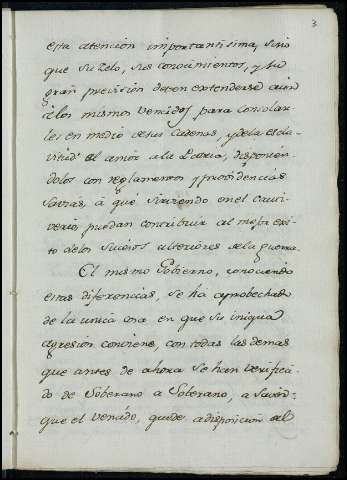 3
esta atención importantisima, sino
que su zelo, sus conocimientos, y su
gran prevision deven extenderse aun
á los mismos vencidos para consolar-
les en medio de sus cadenas, y de la escla-
vitud el amor a la Patria, disponien-
dolos con reglamentos y providencias
savias, á que sirviendo en el cauti-
verio puedan contribuir al mejor exi-
to de los sucesos ulteriores de la guerra.
El mismo Gobierno, conociendo
estas diferencias, se ha aprobechado
de la unica cosa en que su iniqua
agresion conviene, con todas las demas
que antes de ahora se han verifica-
do de Soberano a Soberano, a saver=
que el vencido, quede a disposicion del